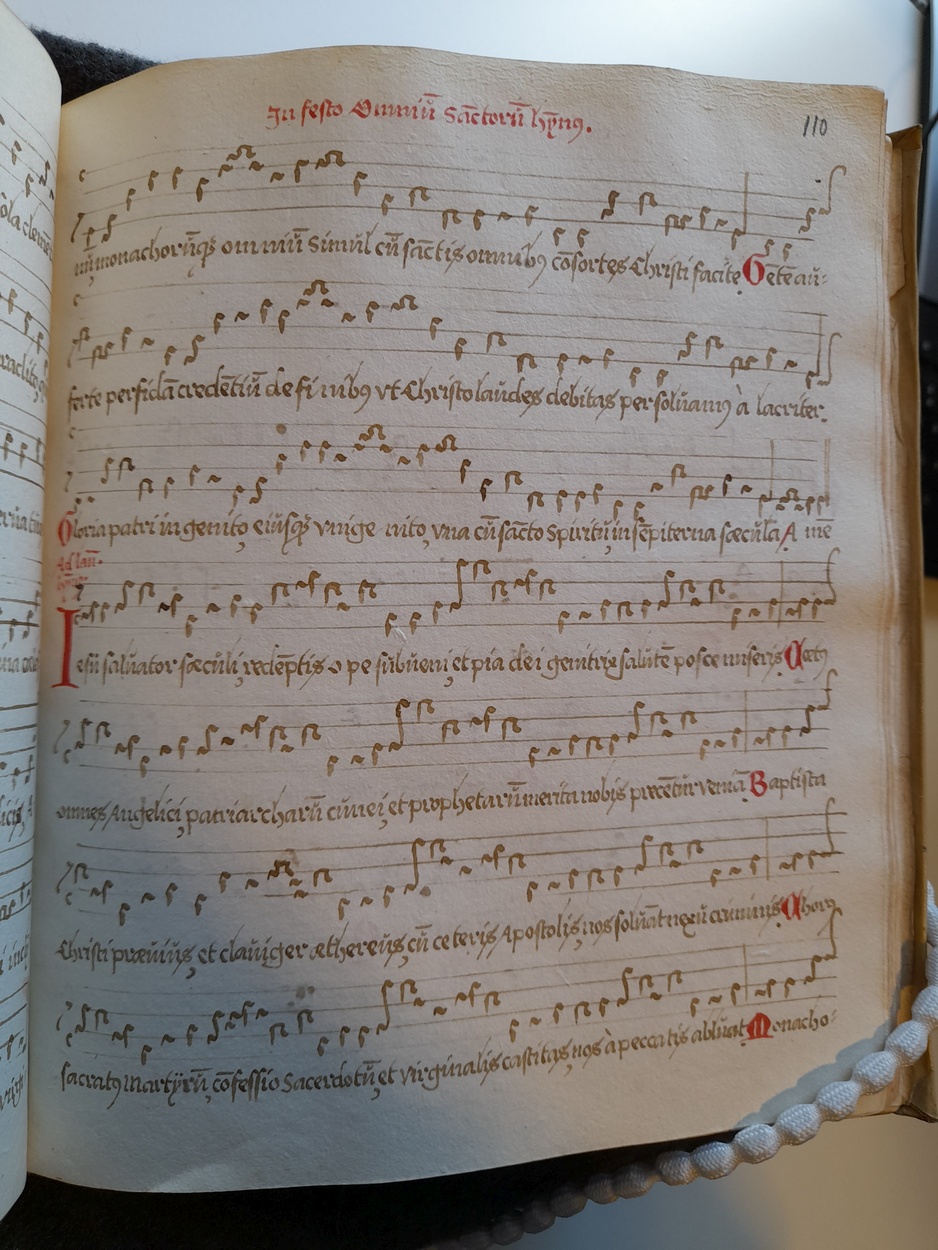 In festo Omniũ Sãctorũ hỹnꝰ.
110
nũ monachorũqꝫ omniũ Simul cũ sãctis omnibꝰ cõsortes Christi facite Gẽtẽ au-
ferte perfidã credẽtiũ de finibꝰ vt Christo laudes debitas persoluamꝰ à lacriter.
Gloria patri ingenito, eiusqꝫ vnigenito, vna cũ sãcto Spiritu, in sẽpiterna sæcula A mẽ
Ad lau.
Iesu saluator sæculi, redẽptis o pe subueni, et pia dei genitrix salutẽ posce miseris Cœtꝰ
omnes Angelici, patriarcharũ cunei, et prophetarũ merita nobis precẽtur veniã Baptista
Christi præuius, et clauiger æthereus, cũ ceteris Apostolis, nos soluãt nexu criminis Chorꝰ
sacratꝰ martÿrũ, cõfessio Sacerdotũ, et virginalis castitas, nos à peccatis abluat Monacho-